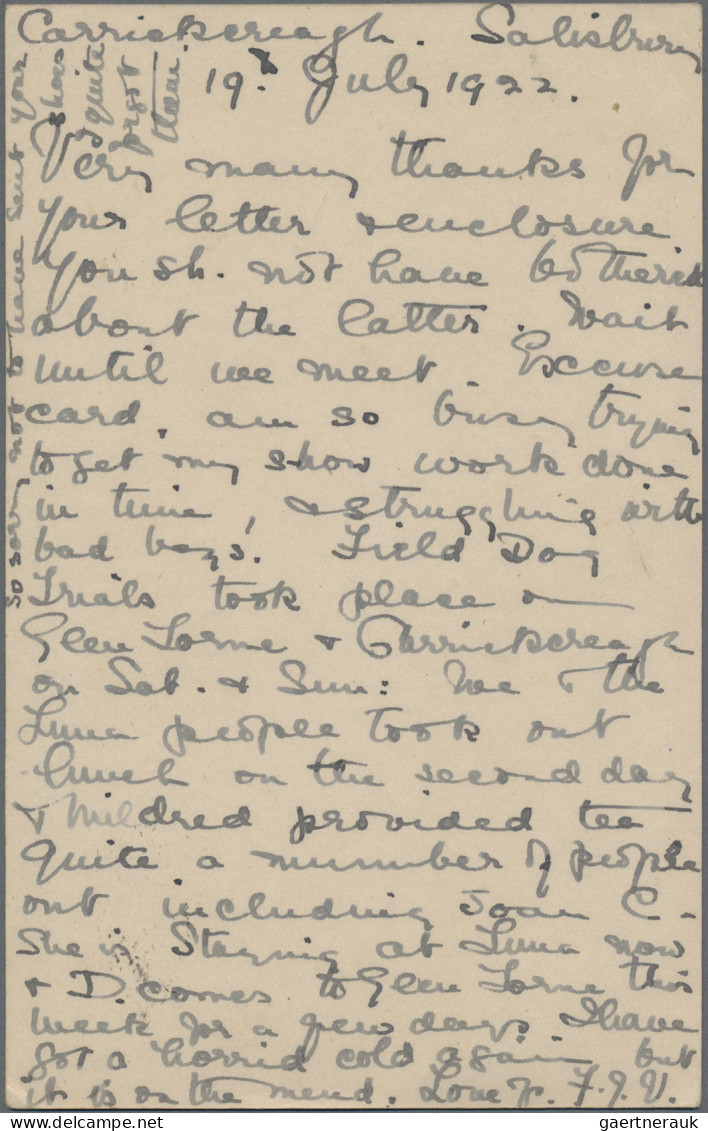 Carrickcreagh. Salisbury
19th July 1922.
Very many thanks for
your letter & enclosure
You sh. not have bothered
about the latter. Wait
until we meet. Excuse
card, am so busy trying
to get my show work done
in time, & struggling with
bad boys! Field Dog
Trials took place on
Glen Lorne & Carrickcreagh
on Sat. & Sun: We & the
Luna people took out
lunch on the second day
& Mildred provided tea
Quite a number of people
out including Joan C-
She is staying at Luna now
& D. comes to Glen Lorne this
week for a few days. I have
got a horrid cold again but
it is on the mend. Love fr. F.J.V.
So sorry not to have sent your
shoes
quite
forgot
them.
gaertnerauk